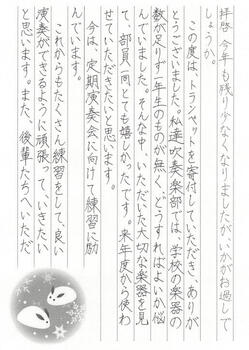 拝啓 今年も残り少なくなりましたが、いかがお過ごし
でしょうか。
この度は、トランペットを寄付していただき、ありが
とうございました。私達吹奏楽部では、学校の楽器の
数が足りず一年生のものが無く、どうすればよいか悩
んでいました。そんな中、いただいた大切な楽器を見
て、部員一同とても嬉しかったです。来年度から使わ
せていただきたいと思います。
今は、定期演奏会に向けて練習に励
んでいます。
これからもたくさん練習をして、良い
演奏ができるように頑張って、いきたい
と思います。また、後輩たちへいただ